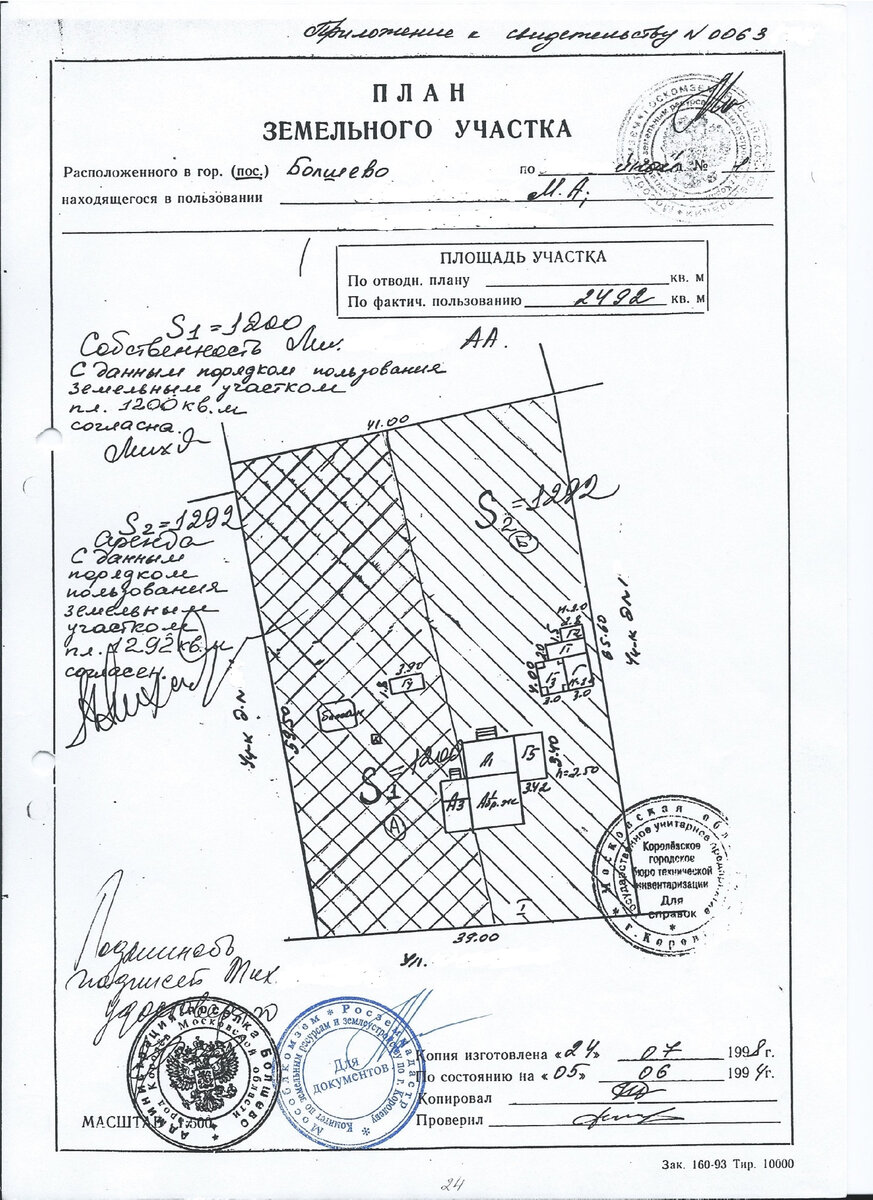 Приложение к свидетельству N 0063
ПЛАН
ЗЕМЕЛЬНОГО УЧАСТКА
Расположенного в гор. (пос.) Болшево по № 1
находящегося в пользовании М.А;
ПЛОЩАДЬ УЧАСТКА
По отводн. плану кв. м
По фактич. пользованию 2492 кв. м
S1=1200
Собственность Мих. А.А.
С данным порядком пользования
земельным участком
пл. 1200 кв.м
согласна.
41.00
S2=1292
аренда
С данным
порядком
пользования
земельным
участком
пл. 1292 кв.м
согласен.
S2=1292
Б
65.60
59.50
3.90
1.8
Г4
4.00
2.0
3.0
3.0
S1=1200
А
А
А1
А3
Г5
3.40
3.42
h=2.50
I
39.00
Ул.
Московская обл
Государственное унитарное предприятие
Королёвское
городское
бюро технической
инвентаризации
Для
справок
Подлинность
подписей Мих
Администрация поселка Болшево
Московской области
Мособлкомзем * Росземкадастр
Комитет по земельным ресурсам и землеустройству по г. Королеву
Для
документов
Копия изготовлена «24» 07 1998 г.
По состоянию на «05» 06 1994 г.
Копировал
Проверил
МАСШТАБ 1:500
Зак. 160-93 Тир. 10000
24